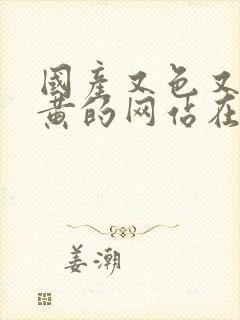 國產又色又
黄的网佔在
姜潮